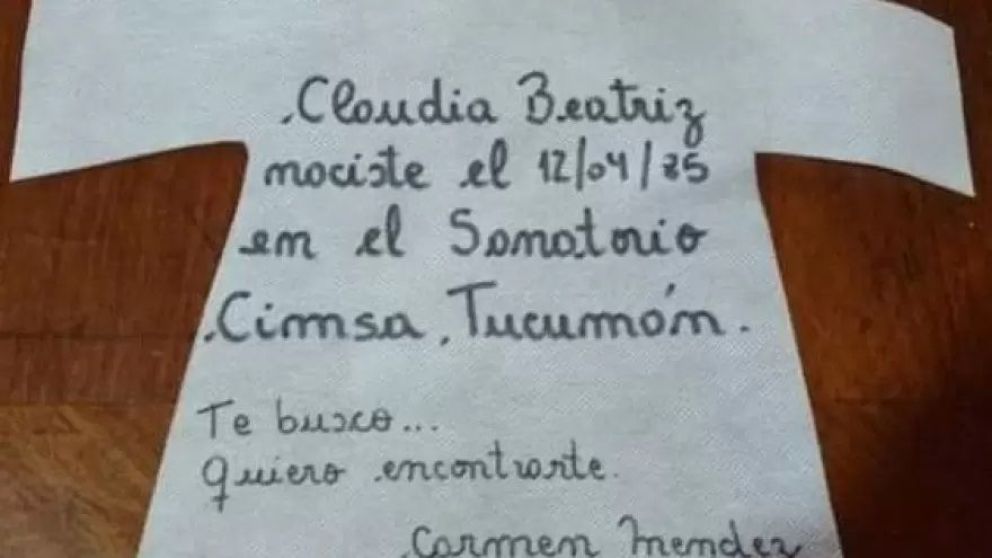 Claudia Beatriz
naciste el 12/04/85
en el Sanatorio
Cimsa, Tucumán.
Te busco...
Quiero encontrarte.
Carmen Mendez